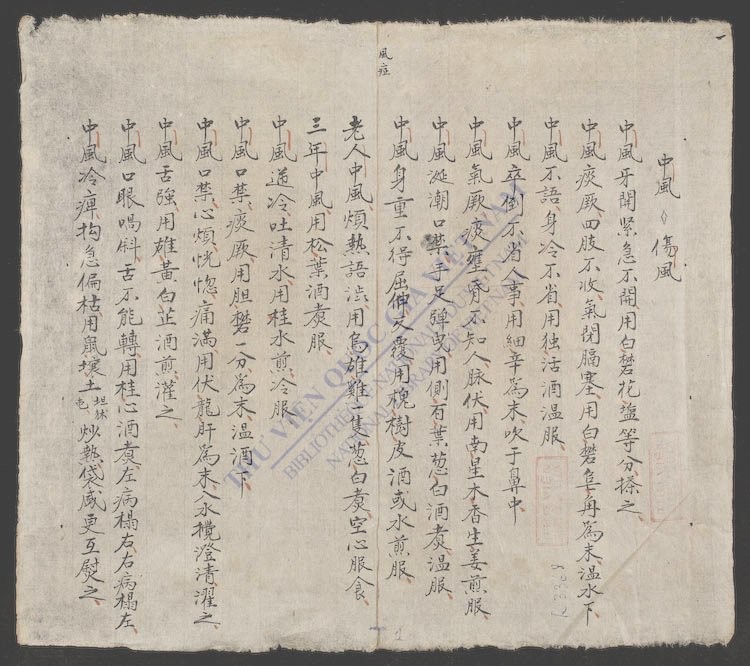 風症
中風 傷風
中風牙開緊急不開用白礬花塩等分搽之
中風痰厥四肢不收氣閉膈塞用白礬皂角為末温水下
中風不語身冷不省用独活酒温服
中風卒倒不省人事用細辛為末吹于鼻中
中風氣厥痰壅昏不知人脉伏用南星木香生姜煎服
中風涎潮口禁手足嚲曳用側百葉葱白酒煮温服
中風身重不得屈伸久覆用槐樹皮酒或水煎服
老人中風煩熱語澁用烏雄雞一隻葱白煮空心服食
三年中風用松葉酒煮服
中風逆冷吐清水用桂水煎冷服
中風口禁痰厥用胆礬一分為末温酒下
中風口禁心煩恍惚痛满用伏龍肝為末入水攪澄清濯之
中風舌強用雄黄白芷酒煎灌之
中風口眼喎斜舌不能轉用桂心酒煮左病榻右右病榻左
中風冷痺拘急偏枯用鼠壤土 炒熱袋咸更互熨之
THƯ VIỆN QUỐC GIA VIỆT NAM
BIBLIOTHÈQUE NATIONALE DU VIETNAM
NATIONAL LIBRARY OF VIETNAM
1